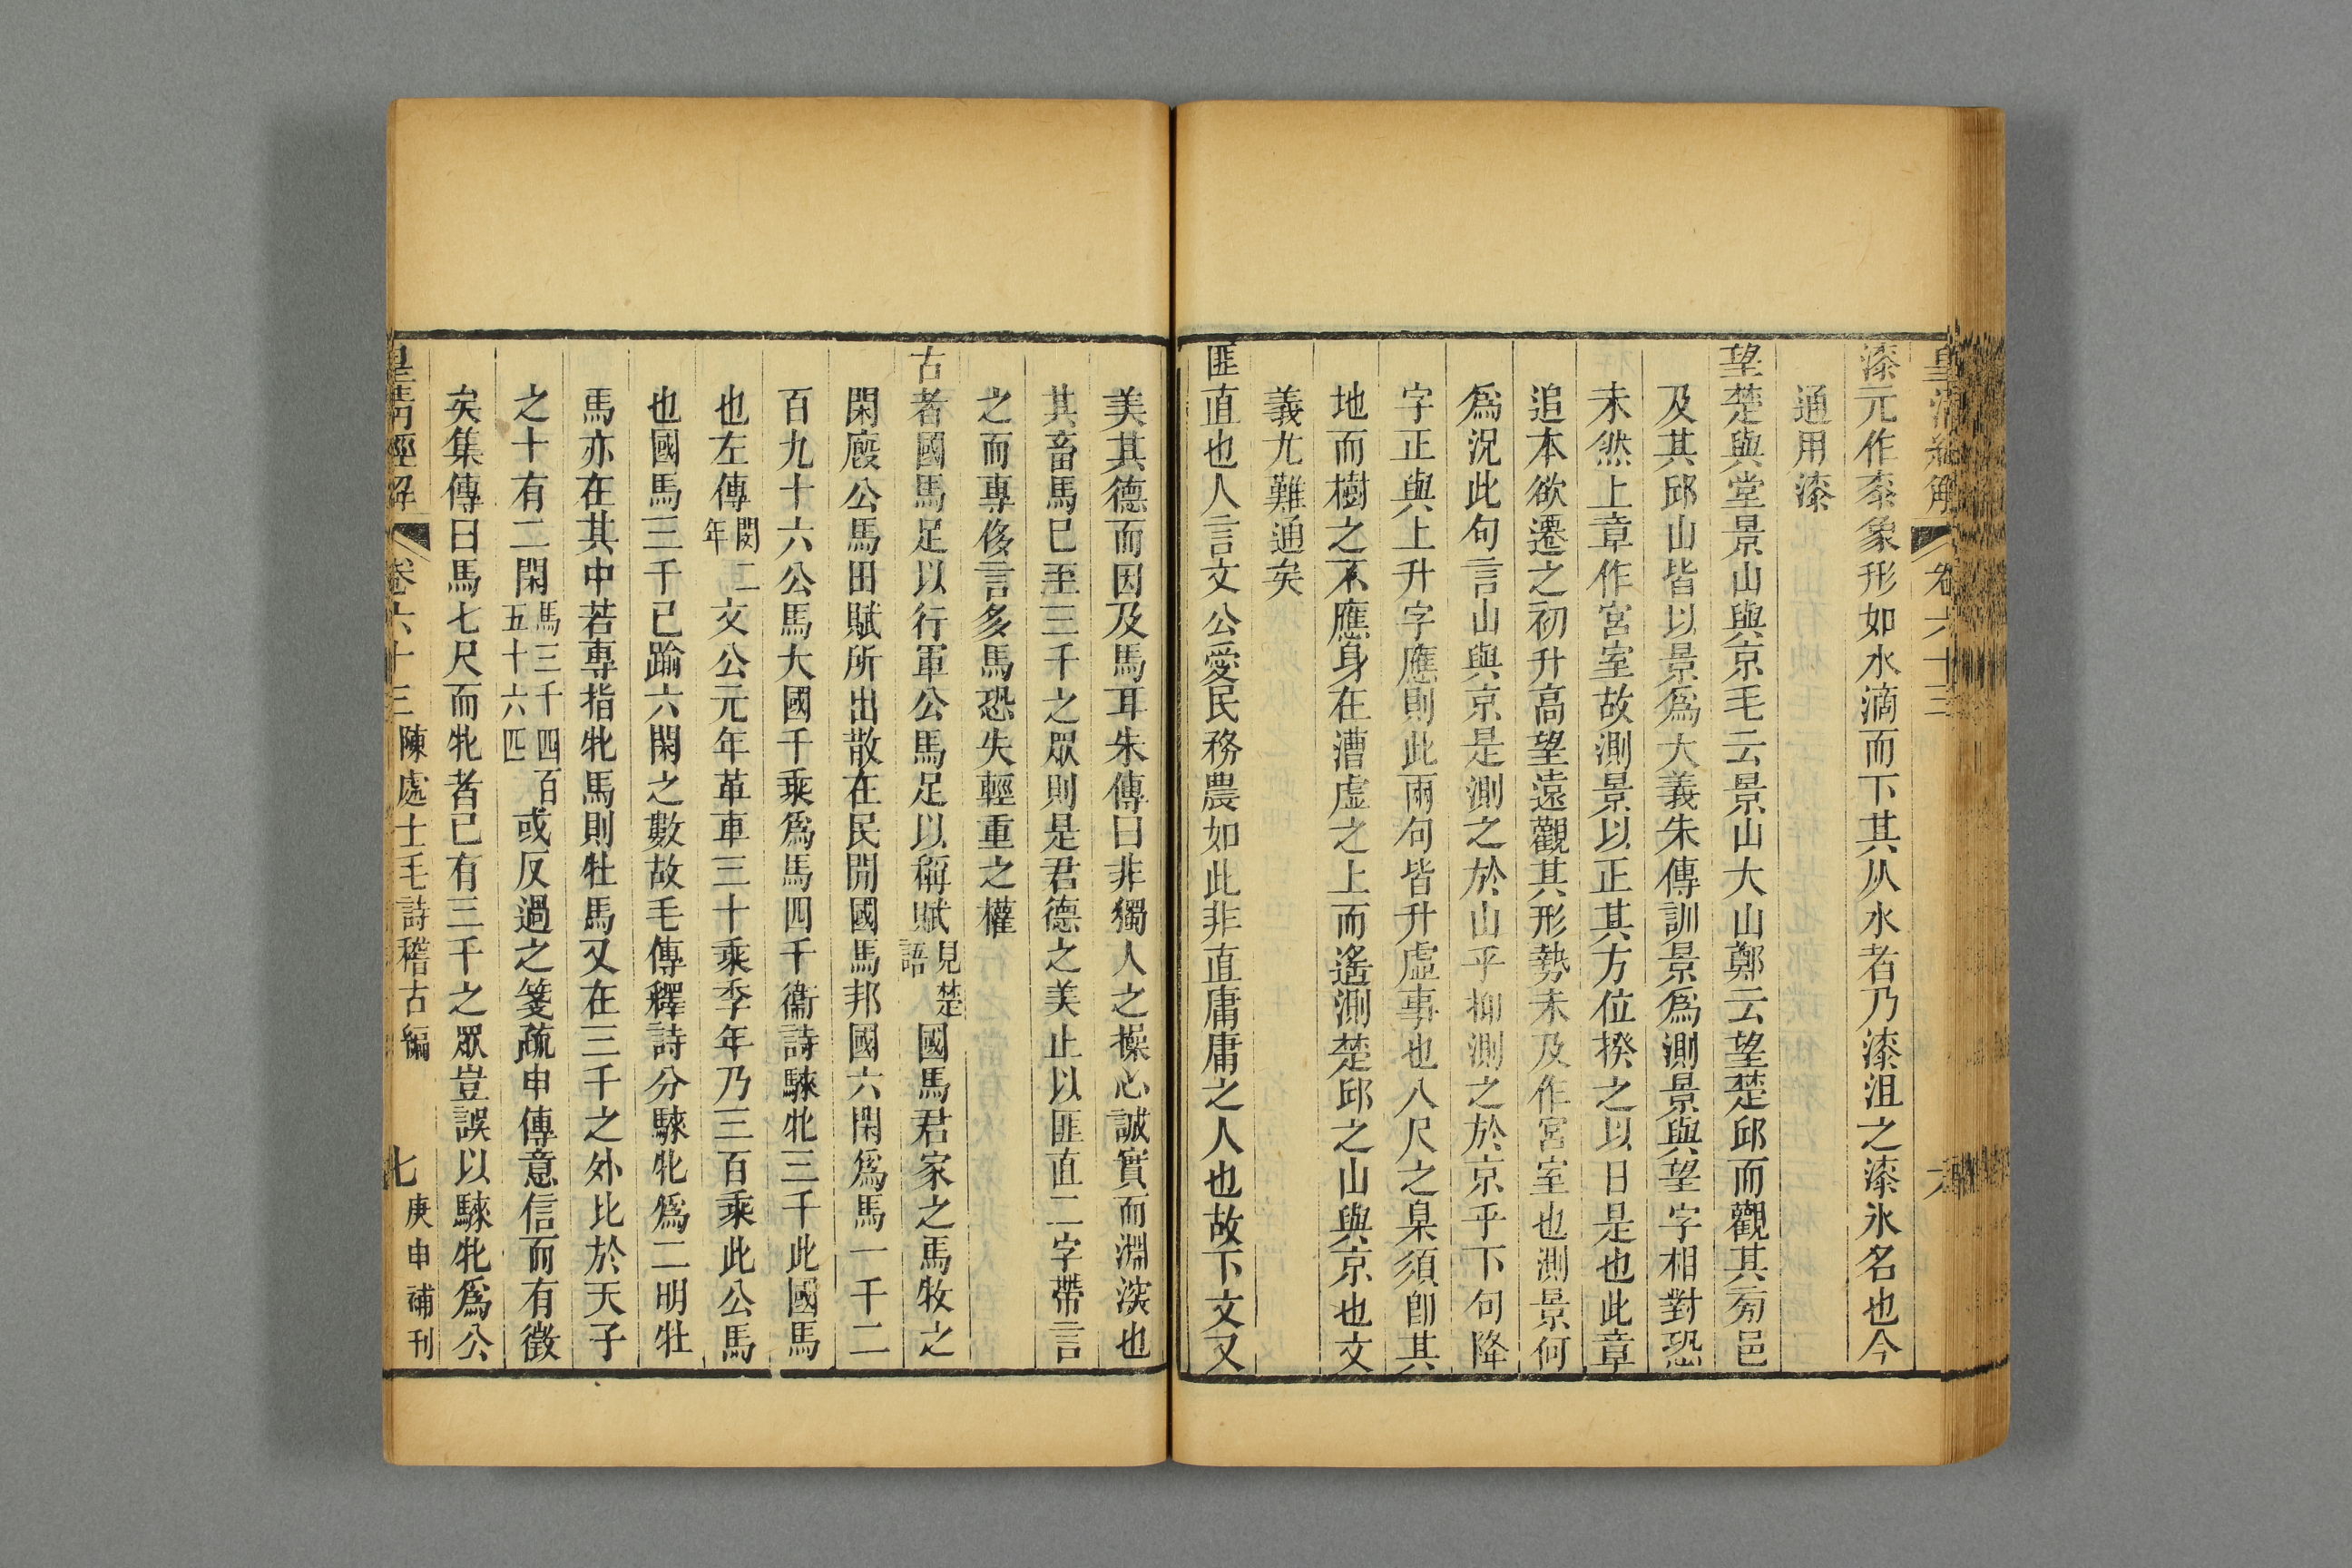 皇清經解 卷六十三 六
漆元作桼象形如水滴而下其从水者乃漆沮之漆水名也今
通用漆
望楚與堂景山與京毛云景山大山鄭云望楚邱而觀其旁邑
及其邱山皆以景爲大義朱傳訓景爲測景與望字相對恐
未然上章作宮室故測景以正其方位揆之以日是也此章
追本欲遷之初升高望遠觀其形勢未及作宮室也測景何
爲況此句言山與京是測之於山乎抑測之於京乎下句降
字正與上升字應則此兩句皆升虛事也八尺之臬須卽其
地而樹之不應身在漕虛之上而遙測楚邱之山與京也文
義尤難通矣
匪直也人言文公愛民務農如此非直庸庸之人也故下文又
美其德而因及馬耳朱傳曰非獨人之操心誠實而淵淡也
其畜馬已至三千之眾則是君德之美止以匪直二字帶言
之而專侈言多馬恐失輕重之權
古者國馬足以行軍公馬足以稱賦見楚語國馬君家之馬牧之
閑廄公馬田賦所出散在民閒國馬邦國六閑爲馬一千二
百九十六公馬大國千乘爲馬四千衞詩騋牝三千此國馬
也左傳閔二年文公元年革車三十乘季年乃三百乘此公馬
也國馬三千已踰六閑之數故毛傳釋詩分騋牝爲二明牡
馬亦在其中若專指牝馬則牡馬又在三千之外比於天子
之十有二閑馬三千四百五十六匹或反過之箋疏申傳意信而有徵
矣集傳曰馬七尺而牝者已有三千之眾豈誤以騋牝爲公
皇淸經解 卷六十三 陳處士毛詩稽古編 七 庚申補刊